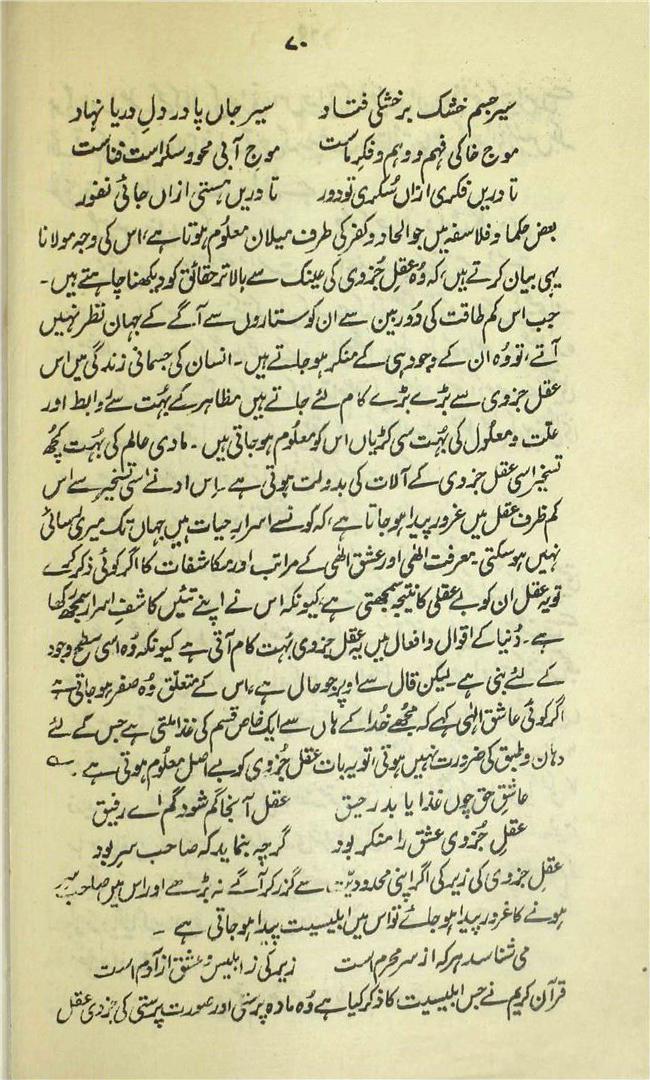 ۷۰
سیر جسم خشک بر خشکی فتاد سیر جاں پا در دلِ دریا نہاد
موج خاکی فہم و وہم و فکرِ ماست موج آبی محو و سکر است فناست
تا دریں فکری ازاں سُکری تو دور تا دریں ہستی ازاں جائی نفور
بعض حکما و فلاسفہ میں جو الحاد و کفر کی طرف میلان معلوم ہوتا ہے، اس کی وجہ مولانا
یہی بیان کرتے ہیں، کہ وُہ عقلِ جُزوی کی عینک سے بالاتر حقائق کو دیکھنا چاہتے ہیں۔
جب اس کم طاقت کی دُوربین سے ان کو ستاروں سے آگے کے جہان نظر نہیں
آتے، تو وُہ ان کے وجود ہی کے منکر ہو جاتے ہیں۔ انسان کی جسمانی زندگی میں اس
عقل جزوی سے بڑے بڑے کام لئے جاتے ہیں مظاہر کے بہُت سے روابط اور
علّت و معلُول کی بہُت سی کڑیاں اس کو معلوم ہو جاتی ہیں۔ مادی عالم کی بہُت کچھ
تسخیر اسی عقل جزوی کے آلات کی بدولت ہوتی ہے۔ اس ادنےٰ سی تسخیر سے اس
کم ظرف عقل میں غرور پیدا ہو جاتا ہے، کہ کونسے اسرارِ حیات ہیں جہاں تک میری رسائی
نہیں ہو سکتی۔ معرفت الٰھی اور عشق الٰھی کے مراتب اور مکاشفات کا اگر کوئی ذکر کرے
تو یہ عقل ان کو بے عقلی کا نتیجہ سمجھتی ہے، کیونکہ اس نے اپنے تئیں کاشفِ اسرار سمجھ رکھا
ہے۔ دُنیا کے اقوال و افعال میں یہ عقلِ جزوی بہُت کام آتی ہے کیونکہ وُہ اسی سطحِ وجود
کے لئے بنی ہے۔ لیکن قال سے اوپر جو حال ہے، اس کے متعلق وُہ صفر ہو جاتی ہے
اگر کوئی عاشقِ الٰہی کہے کہ مجھے خُدا کے ہاں سے ایک خاص قسم کی غذا ملتی ہے جس کے لئے
دہان و طبق کی ضرورت نہیں ہوتی، تو یہ بات عقل جُزوی کو بے اصل معلُوم ہوتی ہے۔ ے
عاشقِ حق چوں غذا یابد رحیق عقل آنجا گم شود گم اے رفیق
عقلِ جُزوی عشق را منکر بود گرچہ بنماید کہ صاحب سرِ بود
عقلِ جزوی کی زیرکی اگر اپنی محدودیّت سے گزر کر آگے نہ بڑھے اور اس میں صاحبِ سِر
ہونے کا غرور پیدا ہو جائے تو اس میں ابلیسیت پیدا ہو جاتی ہے ۔
می شناسد ہر کہ از سر محرم است زیرکی ز ابلیس و عشق از آدم است
قرآن کریم نے جس ابلیسیت کا ذکر کیا ہے وُہ مادہ پرستی اور صورت پرستی کی جزوی عقل